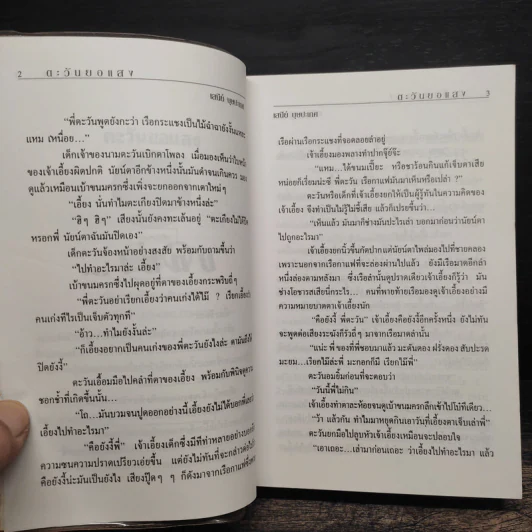 2 ตะวันยอแสง
เสนีย์ บุษปะเกศ
"พี่ตะวันพูดยังกะว่า เรือกระแชงเป็นไม้ฉำฉายังงั้นแหละ
แหม เหนื่อย..."
เด็กเจ้าของนามตะวันเบิกตาโพลง เมื่อมองเห็นว่า
เจ้าเอี้ยงผิดปกติ นัยน์ตาอีกข้างหนึ่งนั้นมันดำจนเกินควร มอง
ดูแล้วเหมือนเบ้าขนมครกซึ่งเพิ่งจะยกออกจากเตาใหม่ๆ
"เอี้ยง นั่นทำไมตะเกียงปิดมาข้างหนึ่งล่ะ"
"ฮิๆ ฮิๆ" เสียงนั้นยังคงทะเล้นอยู่ "ตะเกียงไม่ได้ปิด
หรอกพี่ นัยน์ตาฉันมันปิดเอง"
เด็กตะวันจ้องหน้าอย่างสงสัย พร้อมกับถามขึ้นว่า
"ไปทำอะไรมาล่ะ เอี้ยง"
เบ้าขนมครกซึ่งไปผุดอยู่ที่ตาของเอี้ยงกระพริบถี่ๆ
"พี่ตะวันอย่าเรียกเอี้ยงว่าคนเก่งได้ไม้ ? เรียกเอี้ยงว่า
คนเก่งทีไรเป็นเจ็บตัวทุกที"
"อ้าว...ทำไมยังงั้นล่ะ"
"ก็เอี้ยงอยากเป็นคนเก่งของพี่ตะวันยังไงล่ะ ตามันถึงได้
ปิดยังงี้"
ตะวันเอื้อมมือไปคลำที่ตาของเอี้ยง พร้อมกับพินิจดูความ
ชอกช้ำที่เกิดขึ้นนั้น...
"โถ...มันบวมจนปูดออกอย่างนี้เอี้ยงยังไม่ได้บอกพี่เลยว่า
เอี้ยงไปทำอะไรมา"
"คืองี้พี่" เจ้าเอี้ยงเด็กซึ่งมีทีท่าหลายอย่างบอกถึง
ความซนความปราดเปรียวเอ่ยขึ้น แต่ยังไม่ทันที่จะกล่าวต่อไปว่า
คือยังงี้น่ะมันเป็นยังไง เสียงปู๊ดๆ ๆ ก็ดังมาจากเรือกาแฟซึ่งพาย
ตะวันยอแสง 3
เสนีย์ บุษปะเกศ
เรือผ่านเรือกระแชงที่จอดลอยลำอยู่
เจ้าเอี้ยงมองพลางทำปากจุ๊ยจ๊ะ
"แหม...ได้ขนมเปี๊ยะ หรือชาร้อนกินแก้เจ็บตาเสีย
หน่อยก็เรี่ยมน่ะซี พี่ตะวัน เรือกาแฟมันมาเห็นหรือเปล่า ?"
ตะวันหรือเด็กที่เจ้าเอี้ยงยกให้เป็นผู้รู้ทันในความคิดของ
เจ้าเอี้ยง จึงทำเป็นไม่รู้ไม่ชี้เสีย แล้วก็เปรยขึ้นว่า...
"เห็นแล้ว มันมาก็ช่างมันปะไรเล่า บอกมาก่อนว่านัยน์ตา
ไปถูกอะไรมา"
เจ้าเอี้ยงยกนิ้วขึ้นกัดปากแต่นัยน์ตาไพล่มองไปที่ชายคลอง
เพราะนอกจากเรือกาแฟที่จะล่องผ่านไปแล้ว ยังมีเรือมาดอีกลำ
หนึ่งล่องตามหลังมา ซึ่งเรือลำนั้นดูปราดเดียวเจ้าเอี้ยงก็รู้ว่า มัน
ช่างโอชารสเสียนี่กระไร... คนที่พายท้ายเรือมองดูเจ้าเอี้ยงอย่างมี
ความหมายบาดตาเจ้าเอี้ยงนัก
"คือยังงี้ พี่ตะวัน" เจ้าเอี้ยงคือยังงี้อีกครั้งหนึ่ง ยังไม่ทัน
จะพูดต่อเสียงระฆังก็รัวถี่ๆ มาจากเรือมาดลำนั้น
"แน่ะ พี่ ของที่พี่ชอบมาแล้ว มะดันดอง ฝรั่งดอง สับปะรด
มะยม...เรียกไม้ล่ะพี่ มะกอกก็มี เรียกไม้พี่"
ตะวันอมยิ้มก่อนที่จะตอบว่า
"วันนี้พี่ไม่กิน"
เจ้าเอี้ยงทำตาละห้อยจนดูเบ้าขนมครกลึกเข้าไปโบ๋ทีเดียว...
"ว้า แล้วกัน ทำไมมาหยุดกินเอาวันที่เอี้ยงตาเจ็บเล่าพี่"
ตะวันยกมือไปลูบหัวเจ้าเอี้ยงเหมือนจะปลอบใจ
"เอาเถอะ...เล่ามาก่อนเถอะ ว่าเอี้ยงไปทำอะไรมา แล้ว